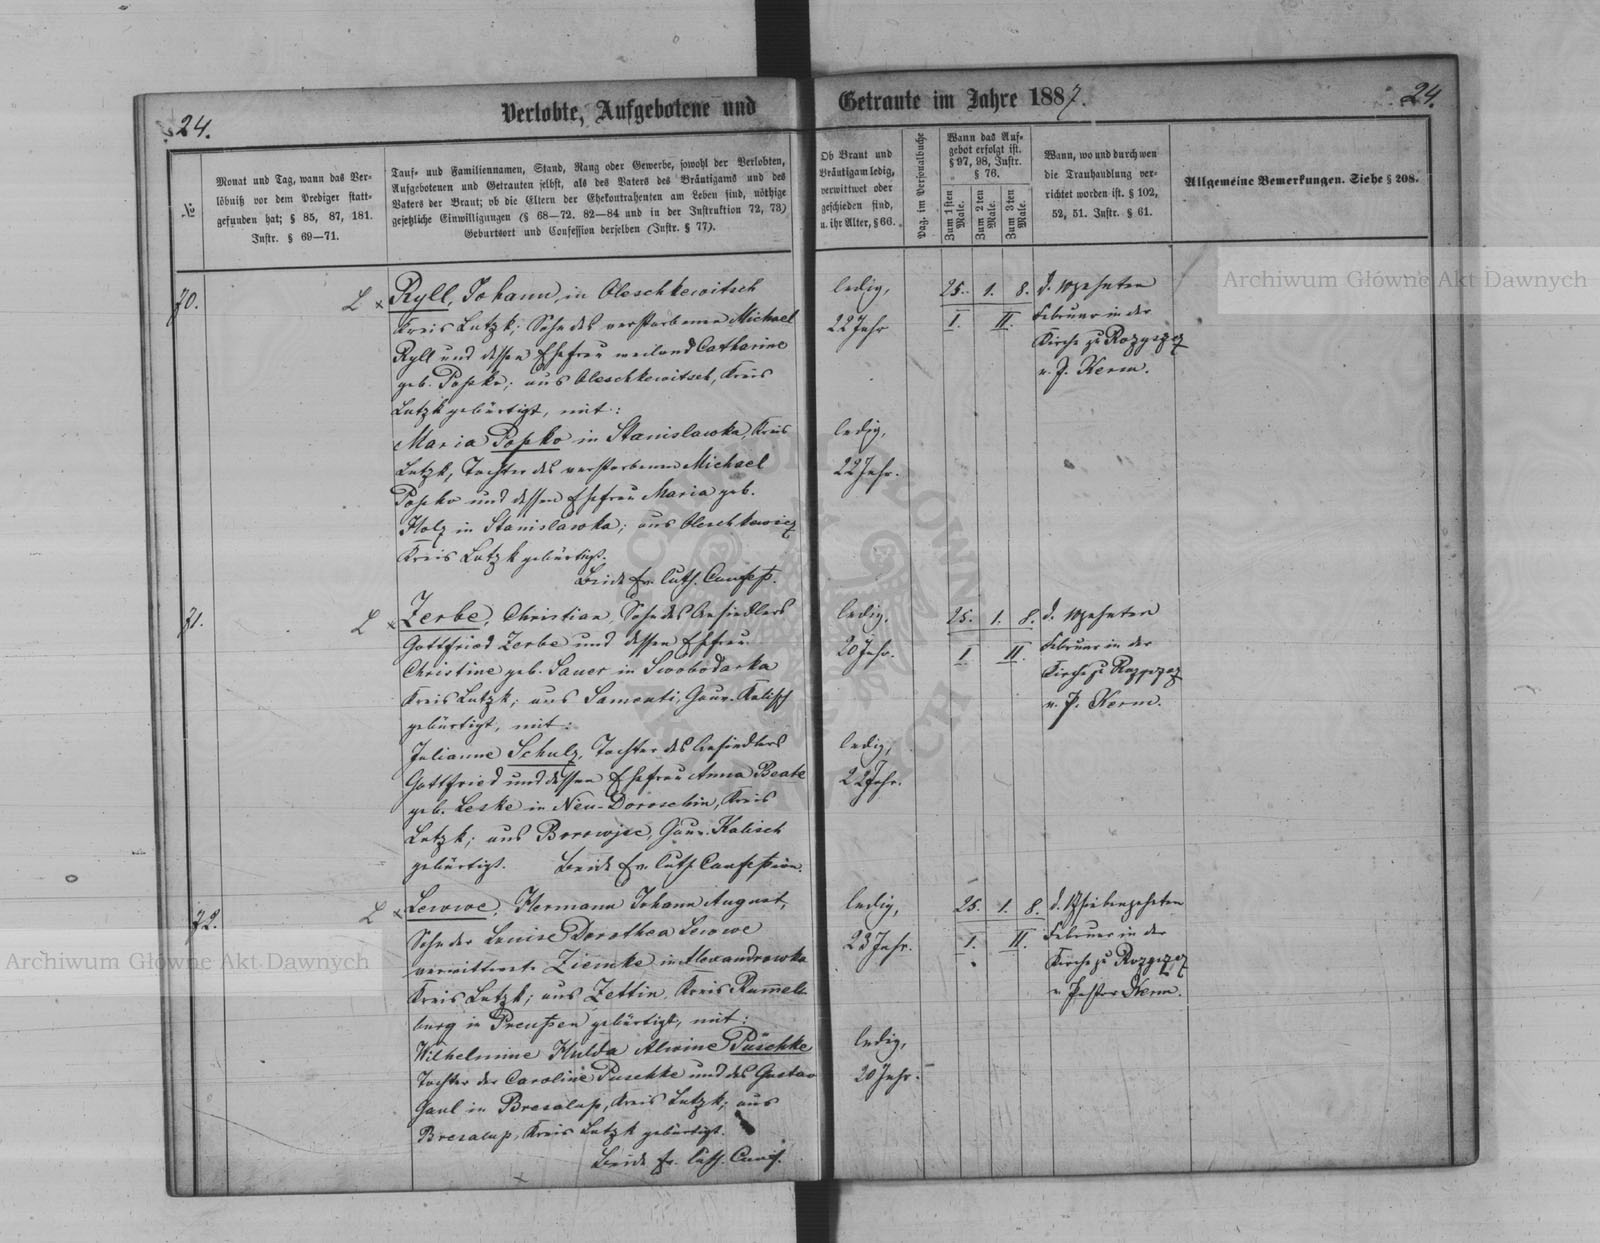 24.
Verlobte, Aufgebotene und
Getraute im Jahre 1887.
24.
№
Monat und Tag, wann das Ver-
löbniß vor dem Prediger statt-
gefunden hat; § 85, 87, 181.
Instr. § 69—71.
Tauf- und Familiennamen, Stand, Rang oder Gewerbe, sowohl der Verlobten,
Aufgebotenen und Getrauten selbst, als des Vaters des Bräutigams und des
Vaters der Braut; ob die Eltern der Ehekontrahenten am Leben sind, nöthige
gesetzliche Einwilligungen (§ 68—72, 82—84 und in der Instruktion 72, 73)
Geburtsort und Confession derselben (Instr. § 77).
Ob Braut und
Bräutigam ledig,
verwittwet oder
geschieden sind,
u. ihr Alter, § 66.
Pag. im Personalbuche
Wann das Auf-
gebot erfolgt ist.
§ 97, 98, Instr.
§ 76.
Zum 1sten
Male.
Zum 2ten
Male.
Zum 3ten
Male.
Wann, wo und durch wen
die Trauhandlung ver-
richtet worden ist. § 102,
52, 51. Instr. § 61.
Allgemeine Bemerkungen. Siehe § 208.
70.
L x Ryll, Johann, in Oleschkewitsch
Kreis Lutzk; Sohn des verstorbenen Michael
Ryll und dessen Ehefrau weiland Catharine
geb. Popko; aus Oleschkewitsch, Kreis
Lutzk gebürtigt, mit:
Maria Popko in Stanislawka, Kreis
Lutzk, Tochter des verstorbenen Michael
Popko und dessen Ehefrau Maria geb.
Holz in Stanislawka; aus Oleschkewicz
Kreis Lutzk gebürtigt.
Beide ev. luth. Confess.
ledig,
22 Jahr
ledig,
22 Jahr.
25. 1. 8.
I. II.
d. Achten
Februar in der
Kirche zu Rozyszcz
v. P. Kerm.
71.
L x Zerbe, Christian, Sohn des Ansiedlers
Gottfried Zerbe und dessen Ehefrau
Christine geb. Sauer in Swobodarka
Kreis Lutzk; aus Gouv. Kalisch
gebürtigt, mit:
Julianne Schulz, Tochter des Ansiedlers
Gottfried und dessen Ehefrau Anna Beate
geb. Leske in Neu-Doroschin, Kreis
Lutzk; aus Gouv. Kalisch
gebürtigt. Beide ev. luth. Confession.
ledig,
20 Jahr.
ledig,
22 Jahr.
25. 1. 8.
I II.
d. Achten
Februar in der
Kirche zu Rozyszcz
v. P. Kerm.
72.
L x Lewwe, Hermann Johann August,
Sohn der Louise Dorothea Lewwe
Ziemke in Alexandrowka
Kreis Lutzk; aus Zettin, Kreis Rummels-
burg in Preußen gebürtigt, mit:
Wilhelmine Hulda Alwine Püschke
Tochter der Caroline Puschke und des Gustav
Gaul in Kreis Lutzk; aus
Kreis Lutzk gebürtigt.
Beide ev. luth. Conf.
ledig,
23 Jahr.
ledig,
20 Jahr.
25. 1. 8.
I. II.
d. Siebenzehnten
Februar in der
Kirche zu Rozyszcz
v. Pastor Kerm.
Archiwum Główne Akt Dawnych
Archiwum Główne Akt Dawnych